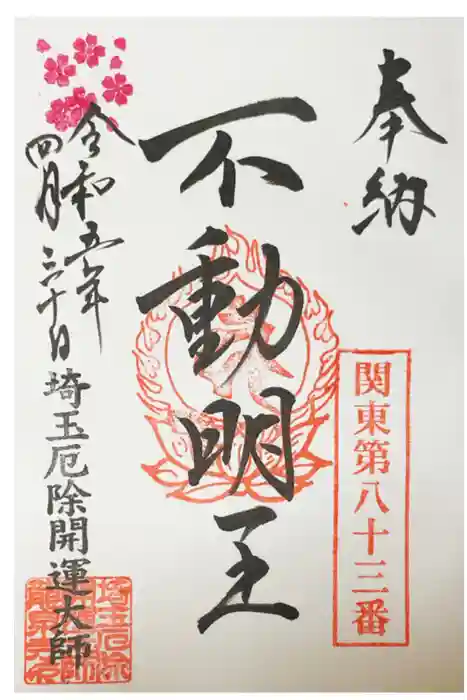 奉納
関東第八十三番
不動明王
令和五年
四月三十日
埼玉厄除開運大師